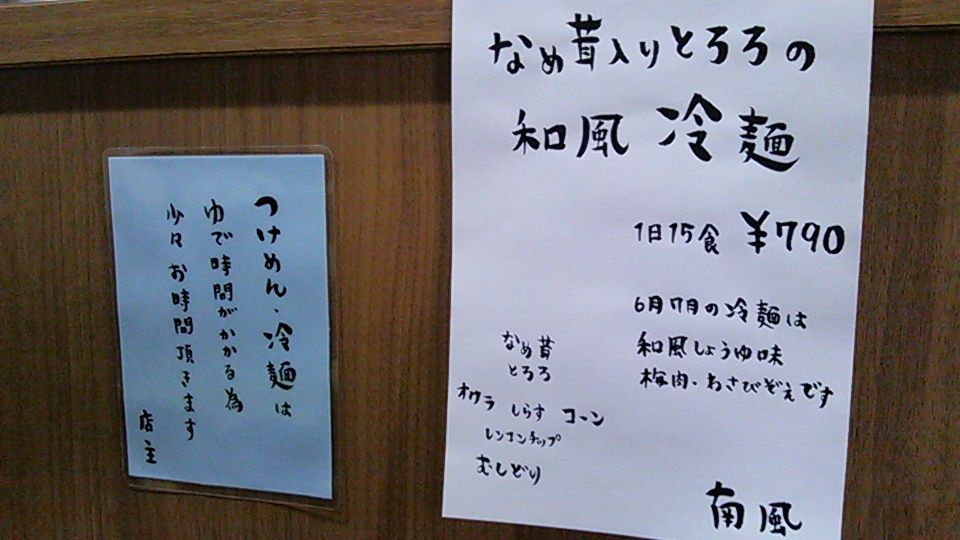 なめ茸入りとろろの
和風 冷麺
1日15食 ¥790
6月7月の冷麺は
和風しょうゆ味
梅肉・わさびぞえです
なめ茸
とろろ
オクラ しらす コーン
レンコンチップ
むしどり
南風
つけめん、冷麺は
ゆで時間がかかる為
少々お時間頂きます
店主